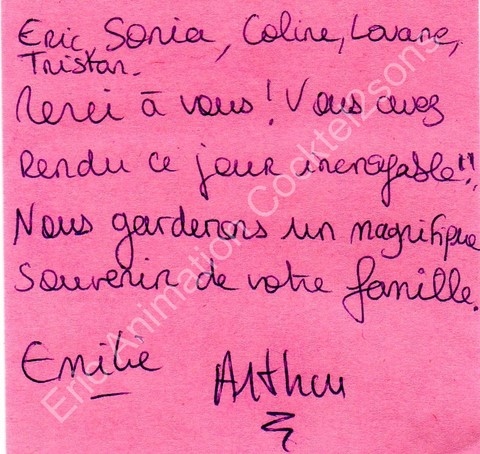 Eric, Sonia, Coline, Lovane,
Tristan.
Merci à vous! Vous avez
rendu ce jour incroyable!!
Nous garderons un magnifique
souvenir de votre famille.
Emilie Arthur
Eric Animation Cocktel2sons